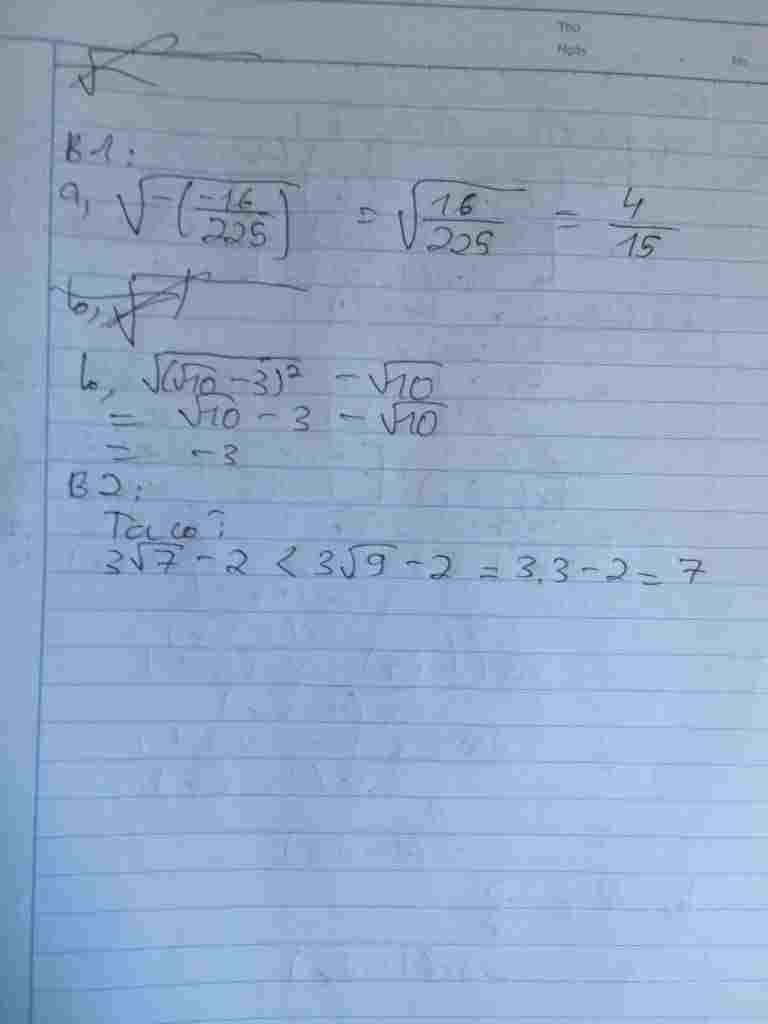 Thứ
Ngày
No.
B1:
a, √-(-16/225) = √16/225 = 4/15
b,
b, √(√10 - 3)² - √10
= √10 - 3 - √10
= -3
B2:
Ta có:
3√7 - 2 < 3√9 - 2 = 3.3 - 2 = 7